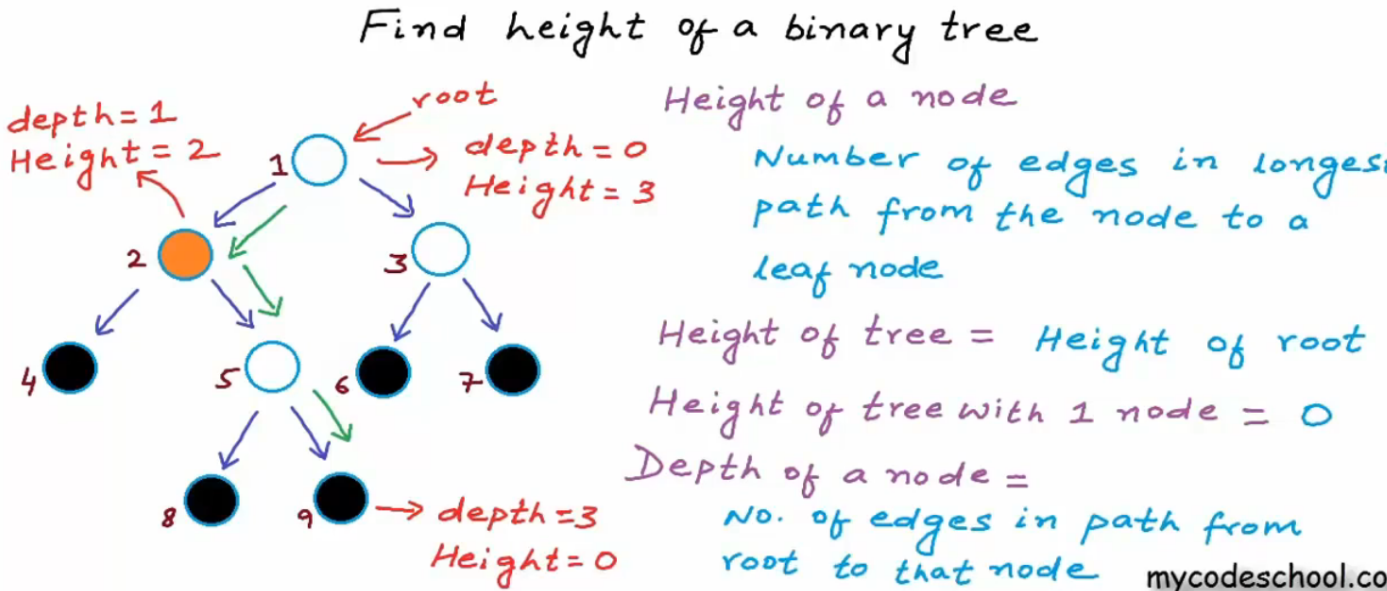 Find height of a binary tree
root
depth = 1
Height = 2
1
depth = 0
Height = 3
2
3
4
5
6
7
8
9
depth = 3
Height = 0
Height of a node
Number of edges in longest
path from the node to a
leaf node
Height of tree = Height of root
Height of tree with 1 node = 0
Depth of a node =
No. of edges in path from
root to that node
mycodeschool.co